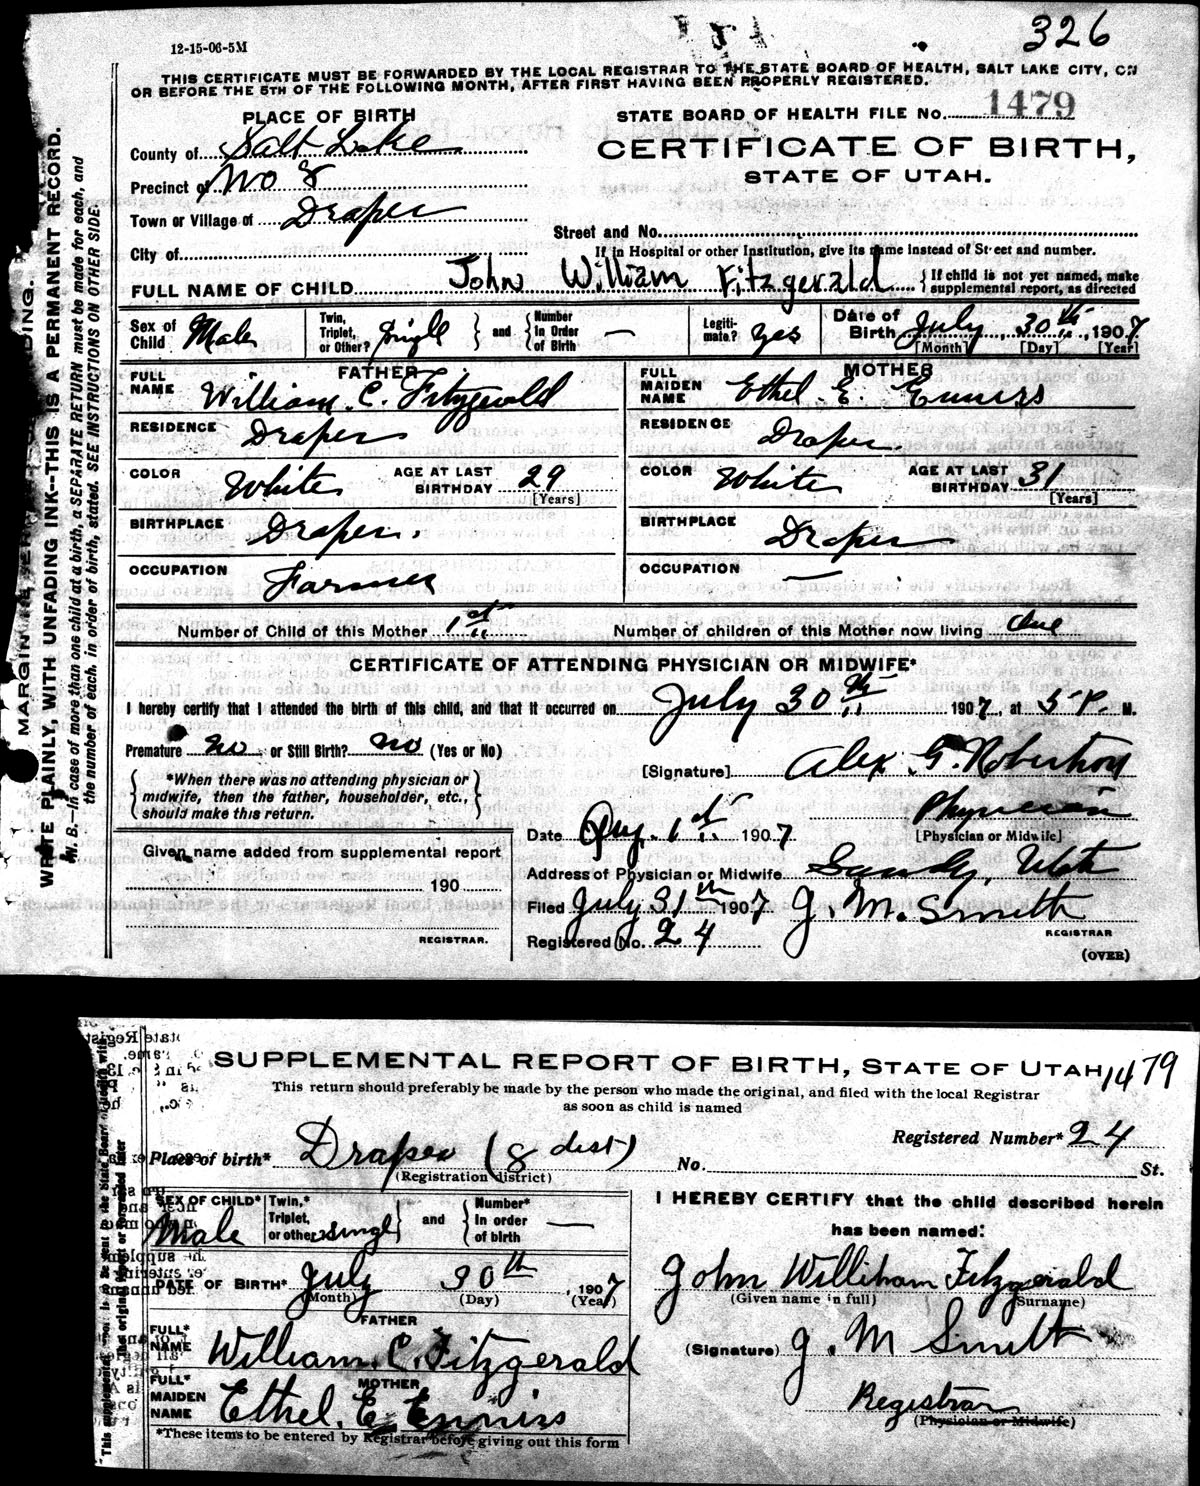 326
12-15-06-5M
THIS CERTIFICATE MUST BE FORWARDED BY THE LOCAL REGISTRAR TO THE STATE BOARD OF HEALTH, SALT LAKE CITY, ON
OR BEFORE THE 5TH OF THE FOLLOWING MONTH, AFTER FIRST HAVING BEEN PROPERLY REGISTERED.
PLACE OF BIRTH
STATE BOARD OF HEALTH FILE No. 1479
County of Salt Lake
CERTIFICATE OF BIRTH,
STATE OF UTAH.
Precinct of No 8
Town or Village of Draper
Street and No.
City of
If in Hospital or other Institution, give its name instead of Street and number.
FULL NAME OF CHILD John William Fitzgerald { If child is not yet named, make supplemental report, as directed
Sex of Child Male Twin, Triplet, or Other? single } and { Number in Order of Birth — Legiti-mate? yes Date of Birth July 30th, 1907
[Month] [Day] [Year]
FATHER
MOTHER
FULL NAME William C. Fitzgerald
FULL MAIDEN NAME Ethel E. Enniss
RESIDENCE Draper
RESIDENCE Draper
COLOR White AGE AT LAST BIRTHDAY 29 [Years]
COLOR White AGE AT LAST BIRTHDAY 31 [Years]
BIRTHPLACE Draper.
BIRTHPLACE Draper
OCCUPATION Farmer
OCCUPATION —
Number of Child of this Mother 1st Number of children of this Mother now living One
CERTIFICATE OF ATTENDING PHYSICIAN OR MIDWIFE*
I hereby certify that I attended the birth of this child, and that it occurred on July 30th 1907, at 5 P. M.
Premature no or Still Birth? no (Yes or No)
[Signature] Alex. G. Robertson
*When there was no attending physician or
midwife, then the father, householder, etc.,
should make this return.
Physician
[Physician or Midwife]
Date Aug. 1st 1907
Given name added from supplemental report
190
REGISTRAR.
Address of Physician or Midwife Sandy, Utah
Filed July 31th 1907 J. M. Smith
REGISTRAR
Registered No. 24
(OVER)
MARGIN RESERVED FOR BINDING.
WRITE PLAINLY, WITH UNFADING INK--THIS IS A PERMANENT RECORD.
N. B.—In case of more than one child at a birth, a SEPARATE RETURN must be made for each, and
the number of each, in order of birth, stated. SEE INSTRUCTIONS ON OTHER SIDE.
SUPPLEMENTAL REPORT OF BIRTH, STATE OF UTAH 1479
This return should preferably be made by the person who made the original, and filed with the local Registrar
as soon as child is named
Registered Number* 24
Place of birth* Draper (8 dist) No. St.
(Registration district)
SEX OF CHILD* Male Twin,* Triplet, or other single } and { Number* in order of birth —
DATE OF BIRTH* July 30th, 1907
(Month) (Day) (Year)
FATHER
FULL* NAME William C. Fitzgerald
MOTHER
FULL* MAIDEN NAME Ethel. E. Enniss
*These items to be entered by Registrar before giving out this form
I HEREBY CERTIFY that the child described herein
has been named:
John Williham Fitzgerald
(Given name in full) (Surname)
(Signature) J. M Smith
Registrar
(Physician or Midwife)